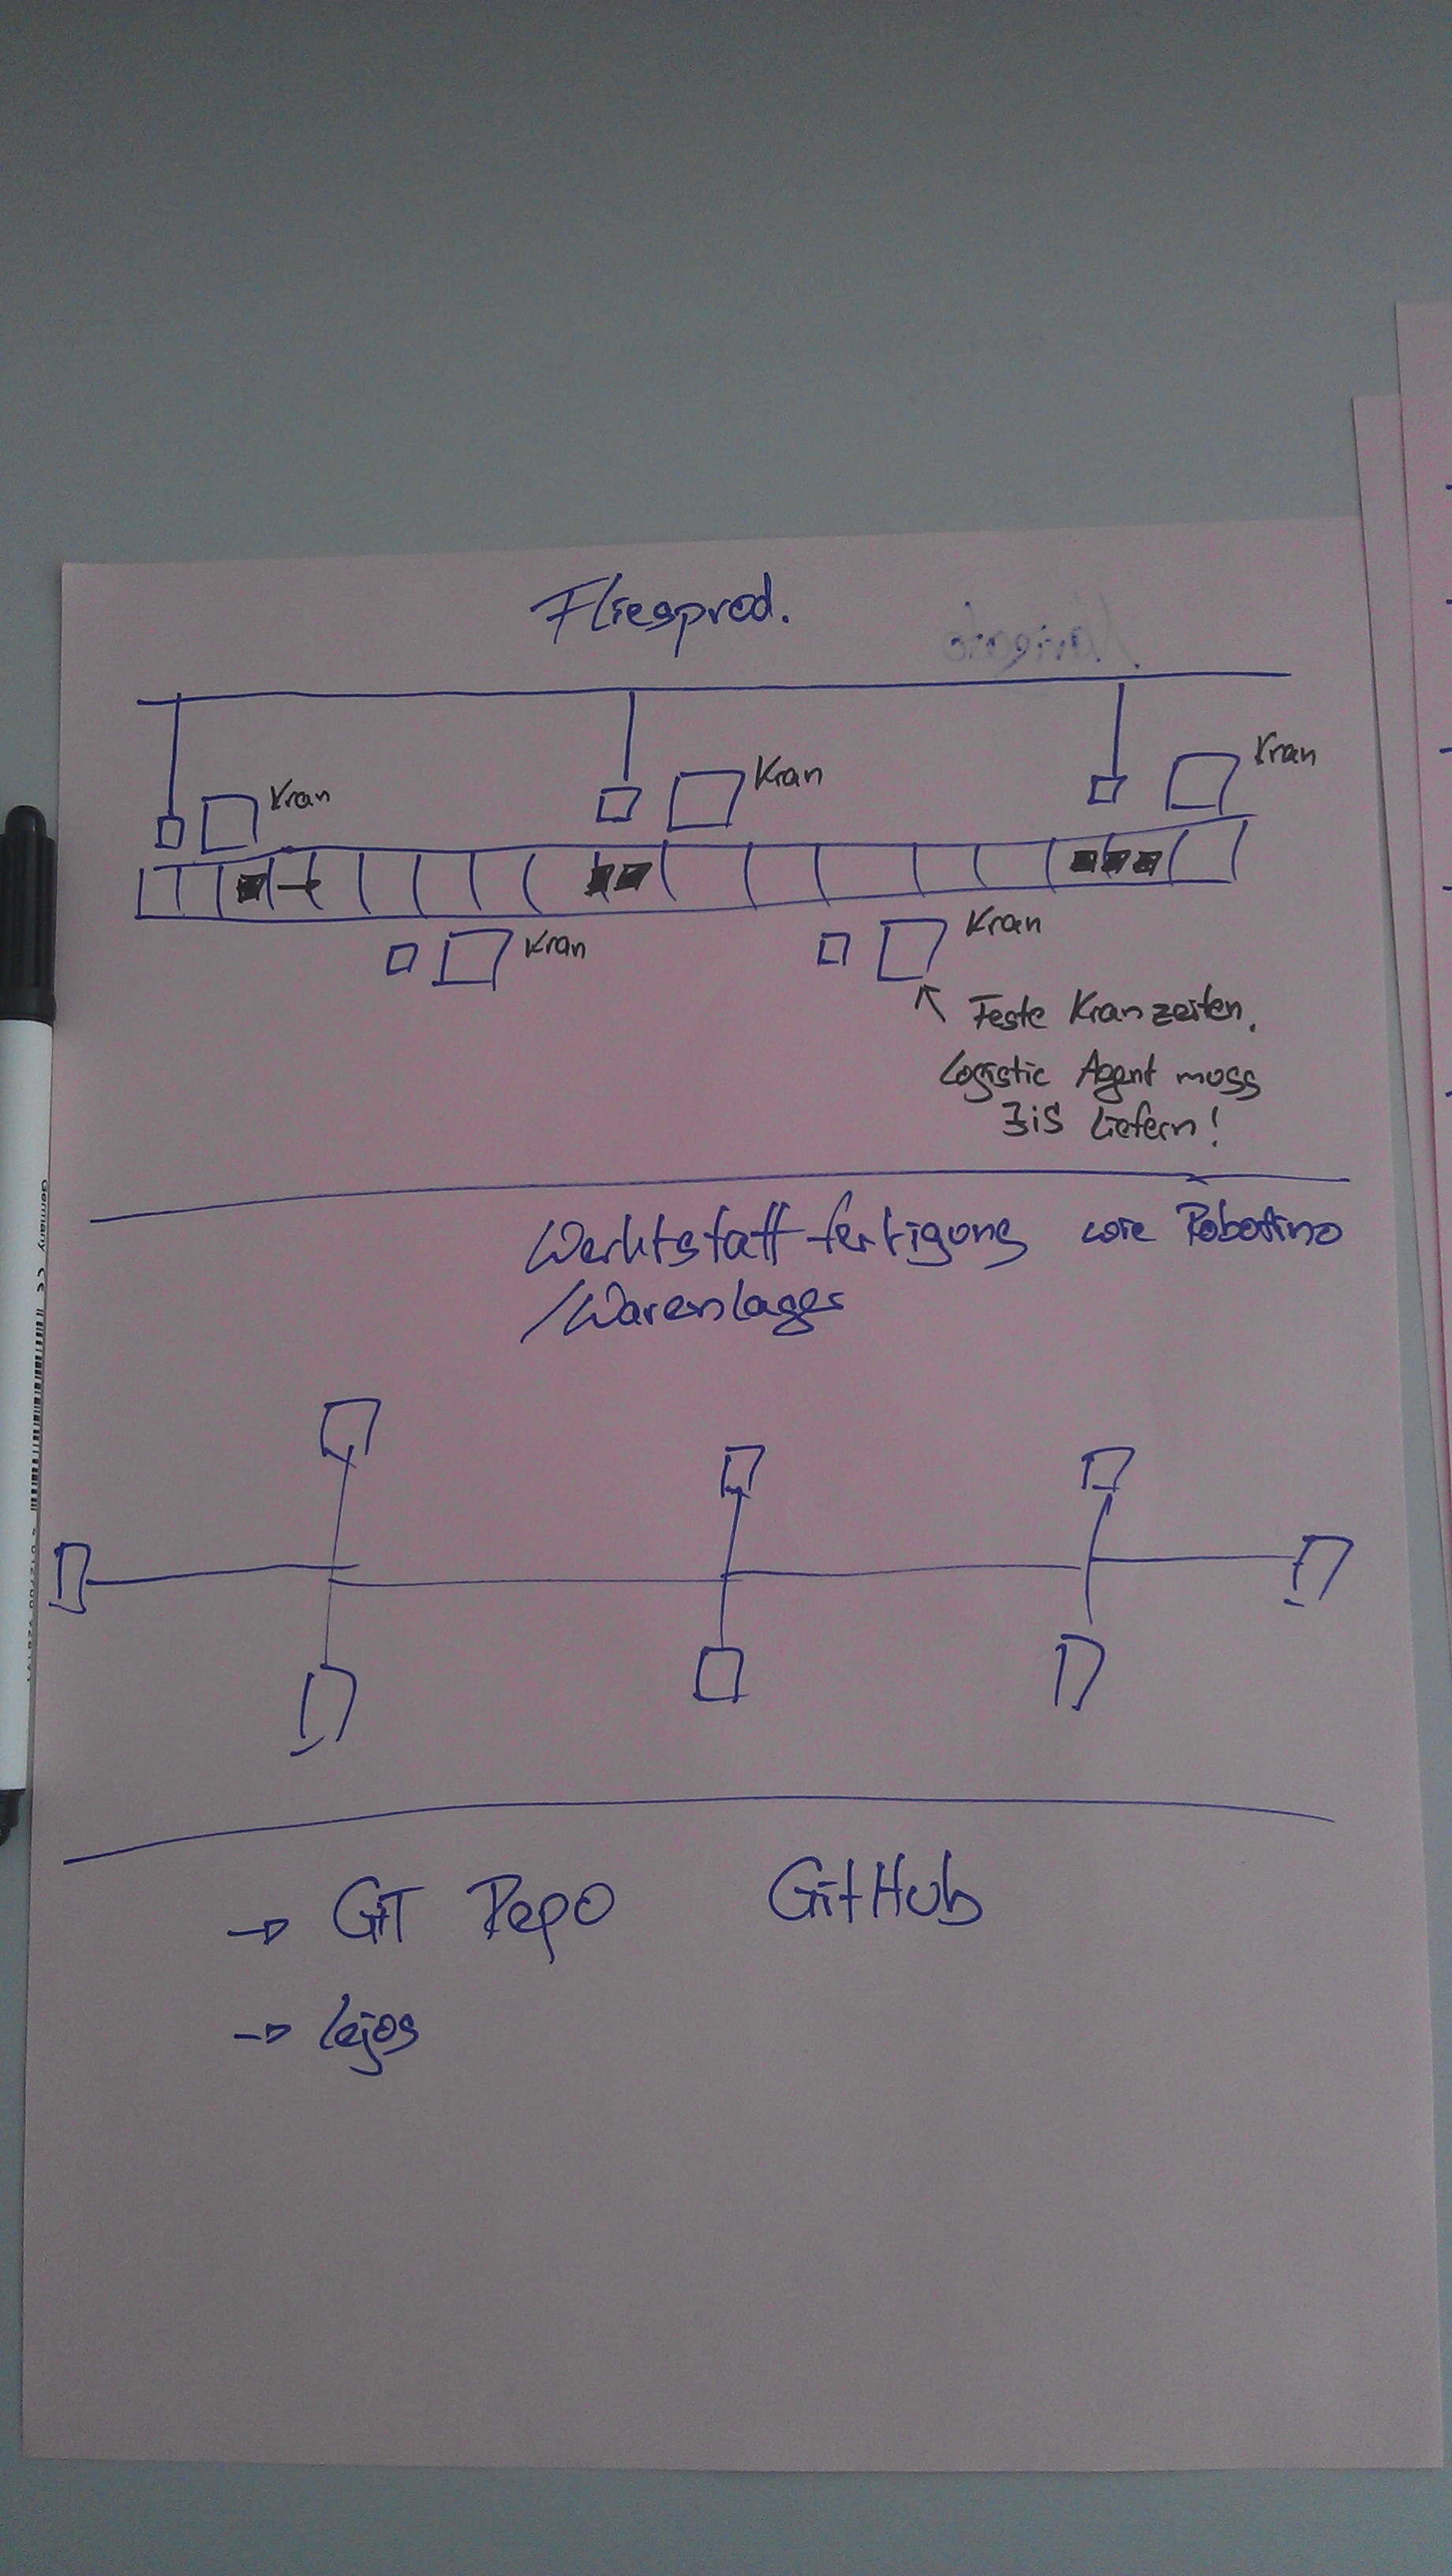 Fliesprod.
Kran
Kran
Kran
Kran
Kran
Feste Kranzeiten.
Logistic Agent muss
JiS liefern!
Werktstattfertigung wie Robotino
/Warenlager
→ GIT Repo GitHub
→ lejos
Germany CE